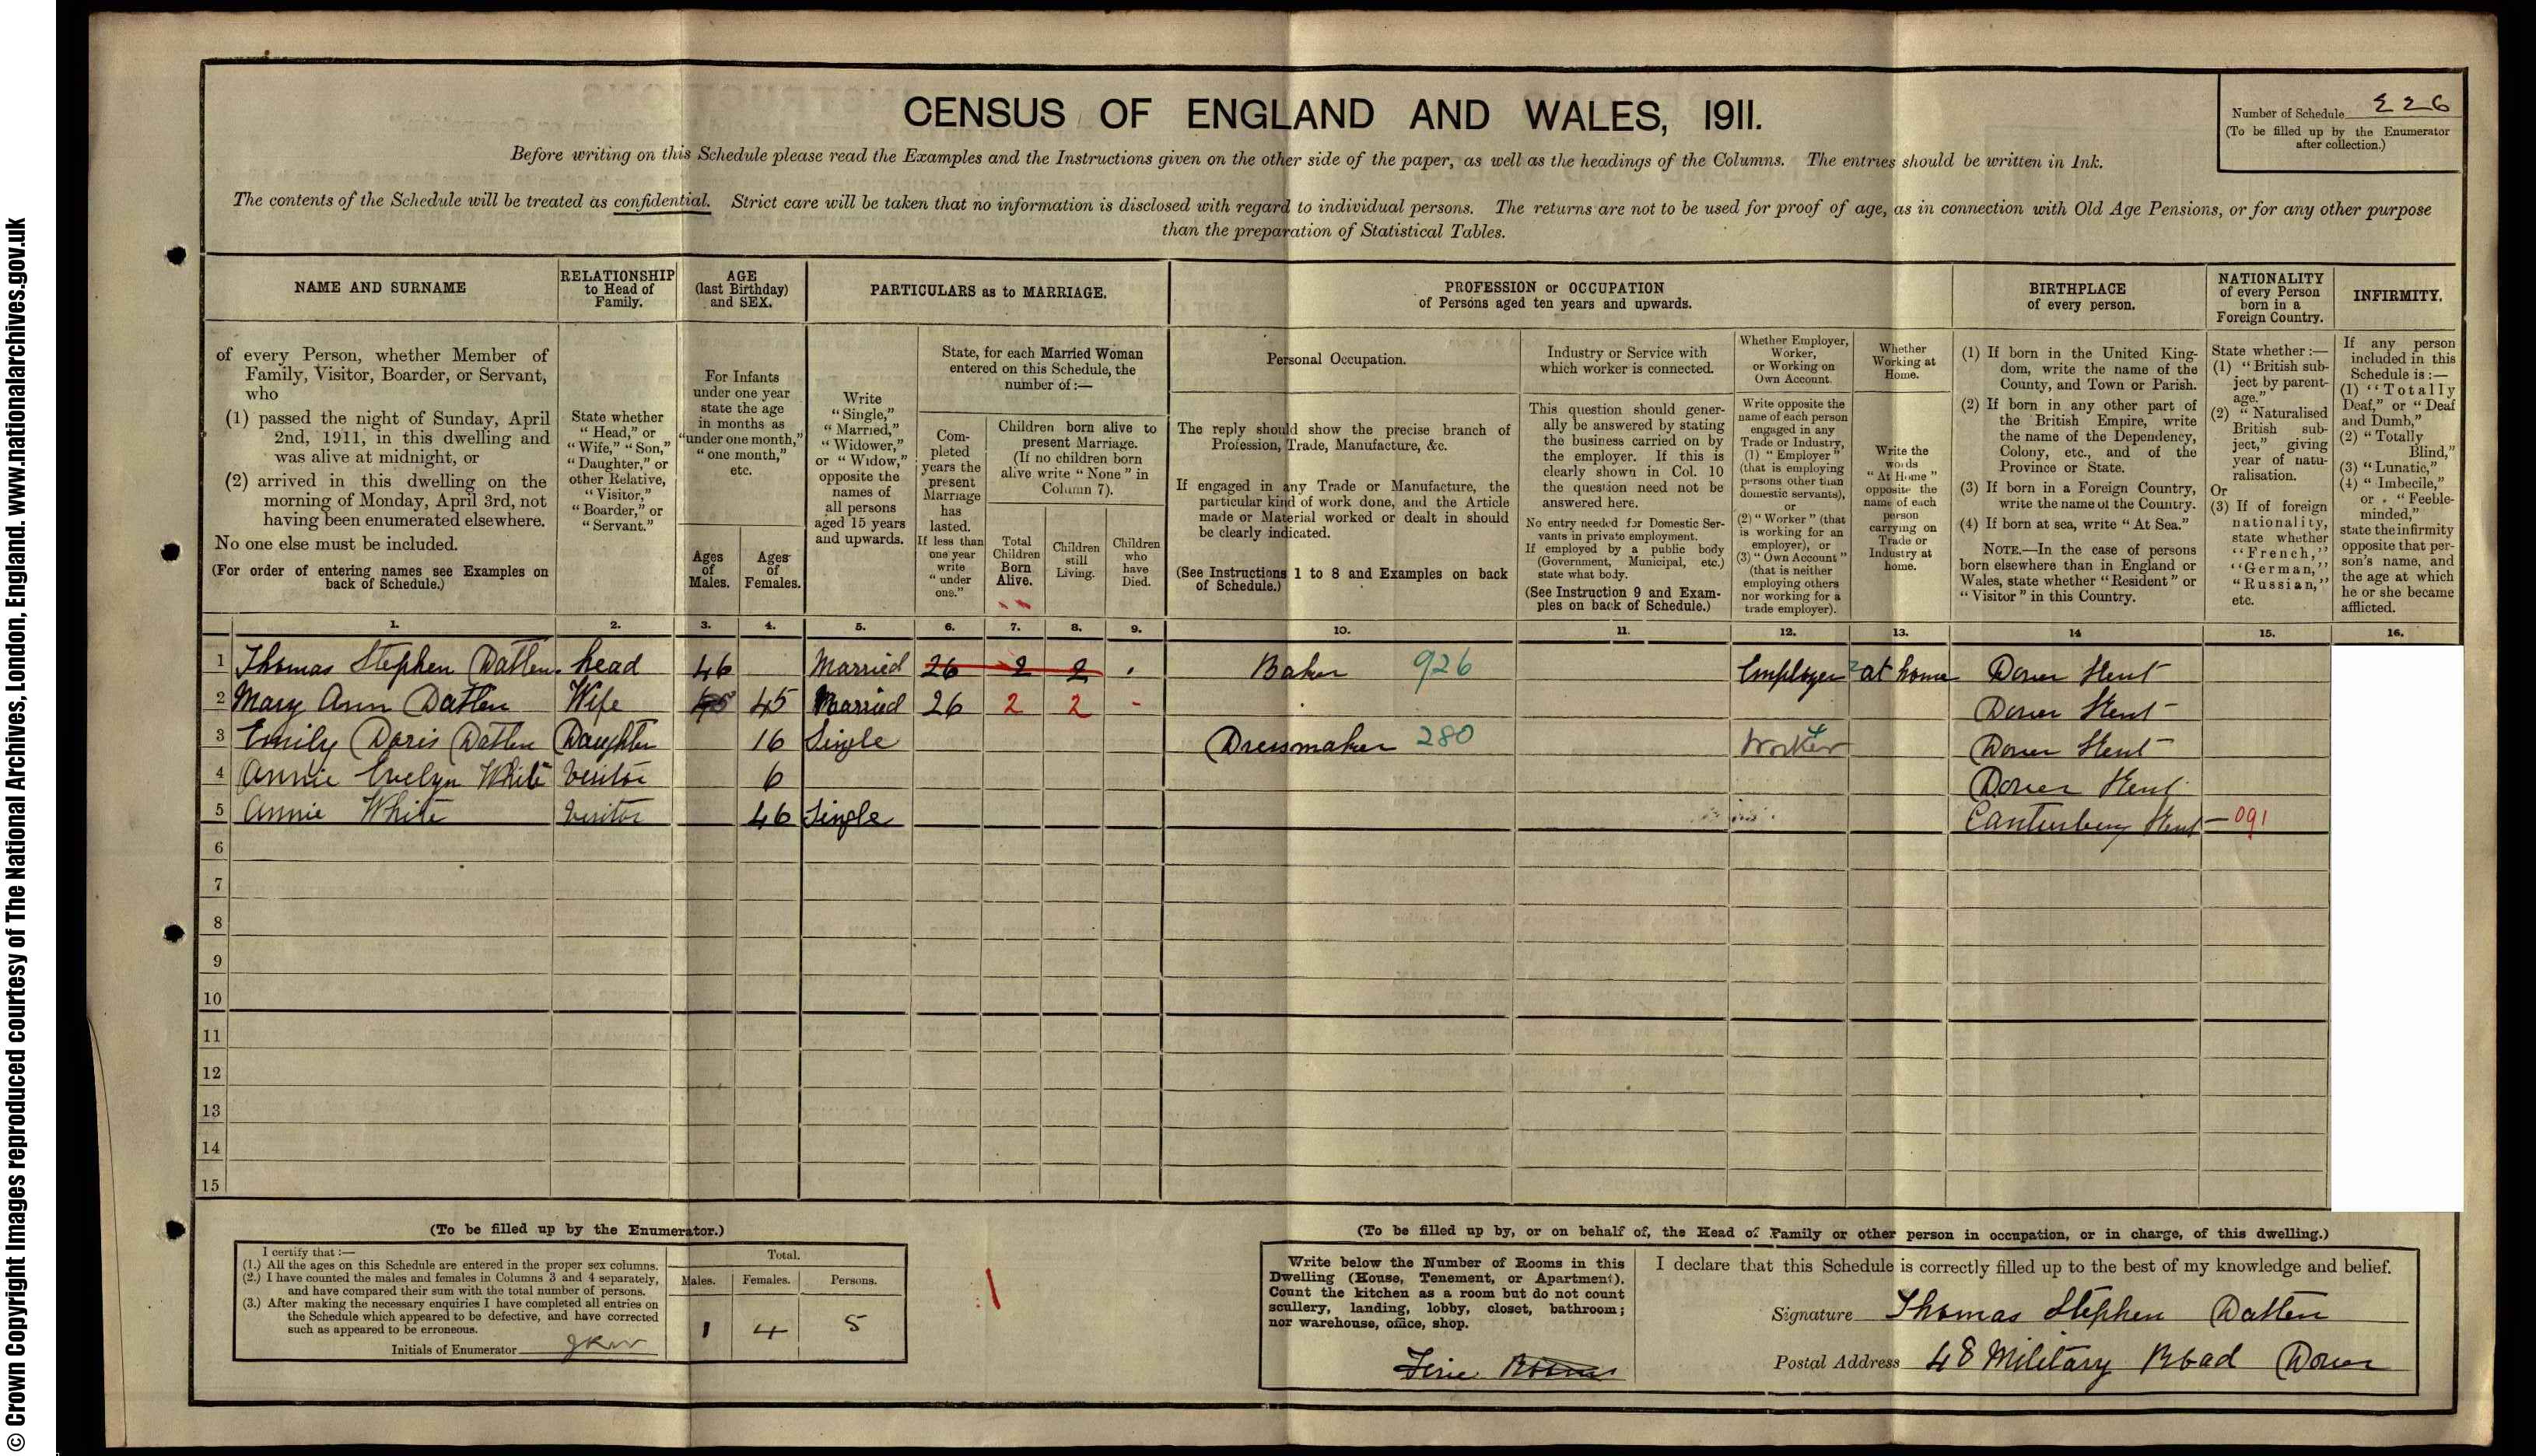 © Crown Copyright Images reproduced courtesy of The National Archives, London, England. www.nationalarchives.gov.uk
CENSUS OF ENGLAND AND WALES, 1911.
Number of Schedule 226
(To be filled up by the Enumerator
after collection.)
Before writing on this Schedule please read the Examples and the Instructions given on the other side of the paper, as well as the headings of the Columns. The entries should be written in Ink.
The contents of the Schedule will be treated as confidential. Strict care will be taken that no information is disclosed with regard to individual persons. The returns are not to be used for proof of age, as in connection with Old Age Pensions, or for any other purpose
than the preparation of Statistical Tables.
NAME AND SURNAME
RELATIONSHIP
to Head of
Family.
AGE
(last Birthday)
and SEX.
PARTICULARS as to MARRIAGE.
PROFESSION or OCCUPATION
of Persons aged ten years and upwards.
BIRTHPLACE
of every person.
NATIONALITY
of every Person
born in a
Foreign Country.
INFIRMITY.
of every Person, whether Member of
Family, Visitor, Boarder, or Servant,
who
(1) passed the night of Sunday, April
2nd, 1911, in this dwelling and
was alive at midnight, or
(2) arrived in this dwelling on the
morning of Monday, April 3rd, not
having been enumerated elsewhere.
No one else must be included.
(For order of entering names see Examples on
back of Schedule.)
State whether
"Head," or
"Wife," "Son,"
"Daughter," or
other Relative,
"Visitor,"
"Boarder," or
"Servant."
For Infants
under one year
state the age
in months as
"under one month,"
"one month,"
etc.
Ages
of
Males.
Ages
of
Females.
Write
"Single,"
"Married,"
"Widower,"
or "Widow,"
opposite the
names of
all persons
aged 15 years
and upwards.
State, for each Married Woman
entered on this Schedule, the
number of:—
Com-
pleted
years the
present
Marriage
has
lasted.
If less than
one year
write
"under
one."
Children born alive to
present Marriage.
(If no children born
alive write "None" in
Column 7).
Total
Children
Born
Alive.
Children
still
Living.
Children
who
have
Died.
Personal Occupation.
The reply should show the precise branch of
Profession, Trade, Manufacture, &c.
If engaged in any Trade or Manufacture, the
particular kind of work done, and the Article
made or Material worked or dealt in should
be clearly indicated.
(See Instructions 1 to 8 and Examples on back
of Schedule.)
Industry or Service with
which worker is connected.
This question should gener-
ally be answered by stating
the business carried on by
the employer. If this is
clearly shown in Col. 10
the question need not be
answered here.
No entry needed for Domestic Ser-
vants in private employment.
If employed by a public body
(Government, Municipal, etc.)
state what body.
(See Instruction 9 and Exam-
ples on back of Schedule.)
Whether Employer,
Worker,
or Working on
Own Account.
Write opposite the
name of each person
engaged in any
Trade or Industry,
(1) "Employer"
(that is employing
persons other than
domestic servants),
or
(2) "Worker" (that
is working for an
employer), or
(3) "Own Account"
(that is neither
employing others
nor working for a
trade employer).
Whether
Working at
Home.
Write the
words
"At Home"
opposite the
name of each
person
carrying on
Trade or
Industry at
home.
(1) If born in the United King-
dom, write the name of the
County, and Town or Parish.
(2) If born in any other part of
the British Empire, write
the name of the Dependency,
Colony, etc., and of the
Province or State.
(3) If born in a Foreign Country,
write the name of the Country.
(4) If born at sea, write "At Sea."
NOTE.—In the case of persons
born elsewhere than in England or
Wales, state whether "Resident" or
"Visitor" in this Country.
State whether:—
(1) "British sub-
ject by parent-
age."
(2) "Naturalised
British sub-
ject," giving
year of natu-
ralisation.
Or
(3) If of foreign
nationality,
state whether
"French,"
"German,"
"Russian,"
etc.
If any person
included in this
Schedule is:—
(1) "Totally
Deaf," or "Deaf
and Dumb,"
(2) "Totally
Blind,"
(3) "Lunatic,"
(4) "Imbecile,"
or "Feeble-
minded,"
state the infirmity
opposite that per-
son's name, and
the age at which
he or she became
afflicted.
1. 2. 3. 4. 5. 6. 7. 8. 9. 10. 11. 12. 13. 14 15. 16.
1 Thomas Stephen Datlen head 46 Married 26 2 2 Baker 926 Employer 2 at home Dover Kent
2 Mary Ann Datlen Wife 45 Married 26 2 2 - Dover Kent
3 Emily Doris Datlen Daughter 16 Single Dressmaker 280 Worker Dover Kent
4 Annie Evelyn White Visitor 6 Dover Kent
5 Annie White Visitor 46 Single Canterbury Kent — 091
6
7
8
9
10
11
12
13
14
15
(To be filled up by the Enumerator.)
I certify that:—
(1.) All the ages on this Schedule are entered in the proper sex columns.
(2.) I have counted the males and females in Columns 3 and 4 separately,
and have compared their sum with the total number of persons.
(3.) After making the necessary enquiries I have completed all entries on
the Schedule which appeared to be defective, and have corrected
such as appeared to be erroneous.
Initials of Enumerator
Total.
Males. Females. Persons.
1 4 5
(To be filled up by, or on behalf of, the Head of Family or other person in occupation, or in charge, of this dwelling.)
Write below the Number of Rooms in this
Dwelling (House, Tenement, or Apartment).
Count the kitchen as a room but do not count
scullery, landing, lobby, closet, bathroom;
nor warehouse, office, shop.
Five Rooms
I declare that this Schedule is correctly filled up to the best of my knowledge and belief.
Signature Thomas Stephen Datlen
Postal Address 48 Military Road Dover